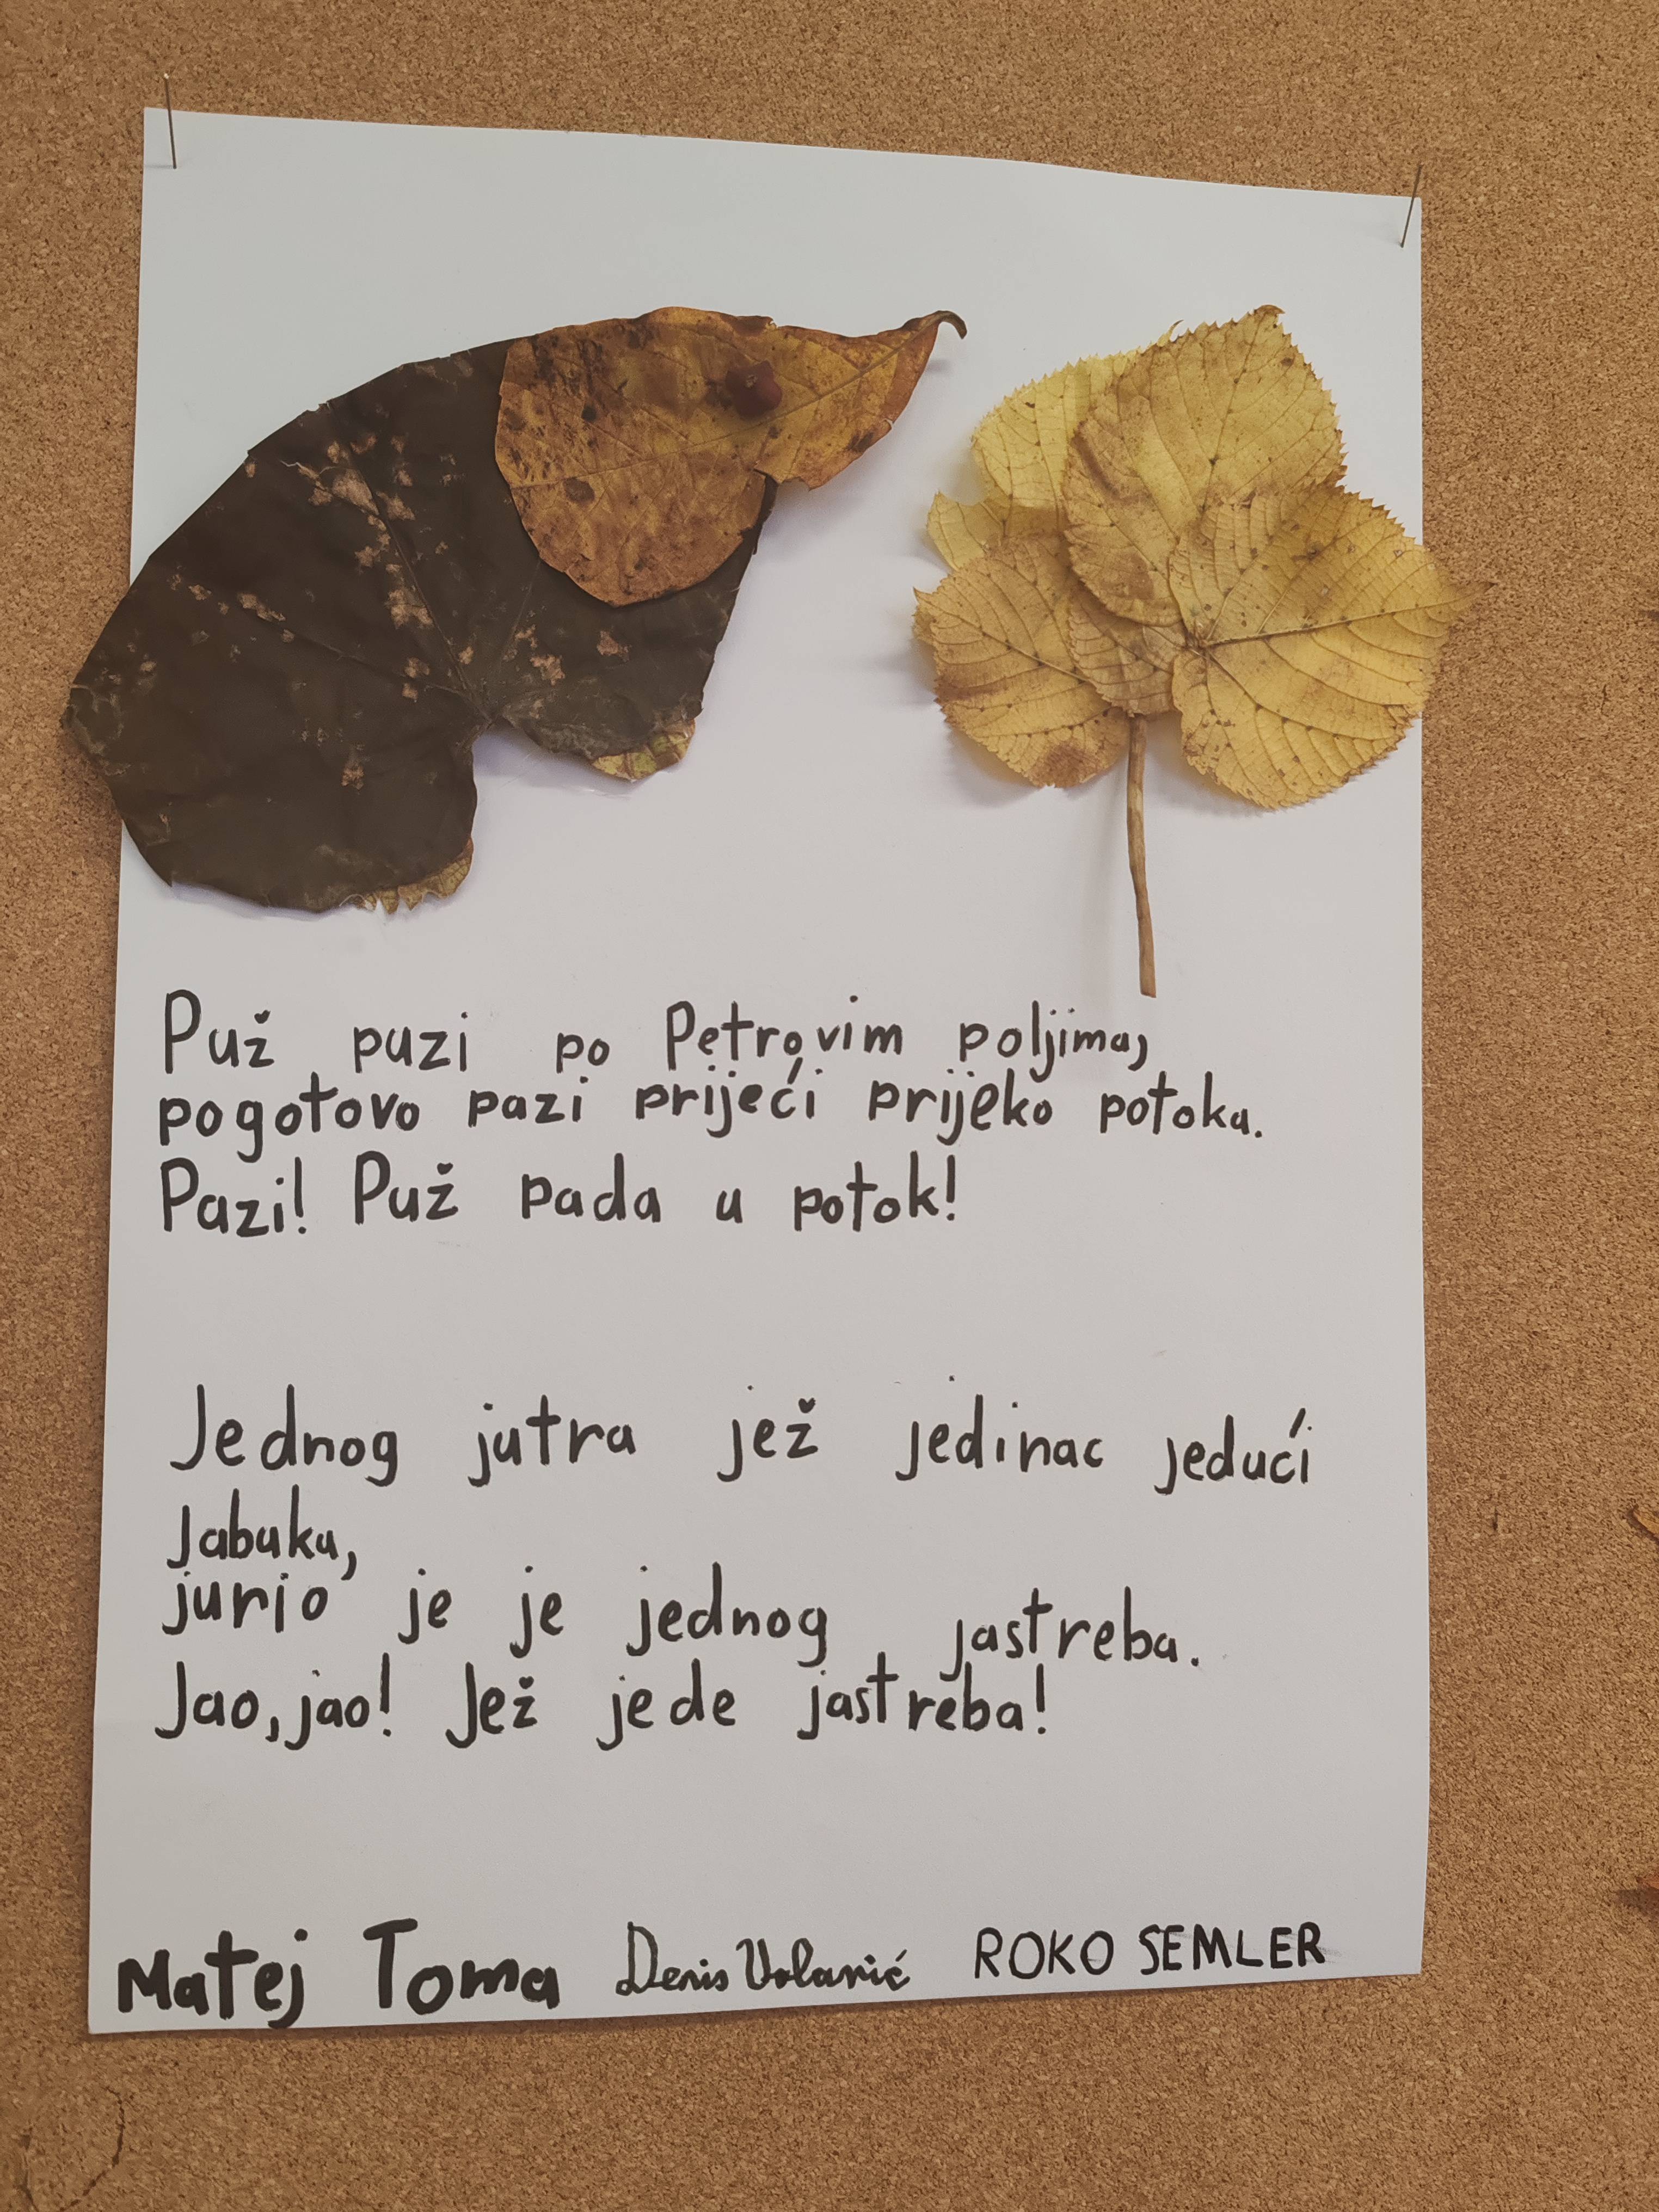 Puž puzi po Petrovim poljima,
pogotovo pazi prijeći prijeko potoka.
Pazi! Puž pada u potok!
Jednog jutra jež jedinac jedući
jabuku,
jurio je je jednog jastreba.
Jao, jao! Jež jede jastreba!
Matej Toma Denis ROKO SEMLER